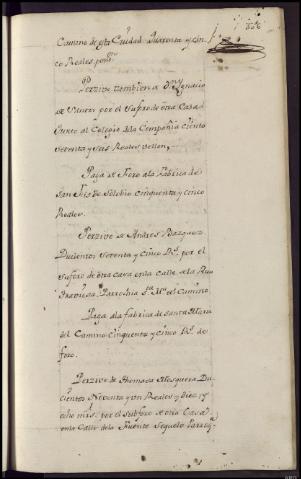 Camino de esta Ciudad Quarenta y cin
co Reales
Perzive tambien a Dn Ygnacio
de por el Suforo de otra Casa
Junto al Colegio dela Compañia ciento
Setenta y seis Reales vellon,
Paga de foro ala Fabrica de
San de Solobio cinquenta y cinco
Reales.
Perzive de Andres Bazquez
Ducientos Setenta y Cinco Rs. por el
Suforo de otra casa enla calle dela Rua
Parrochia Sta. Ma. del Camino,
Paga ala fabrica de santa Maria
del Camino cinquenta y cinco Rs. de
foro.
Perzive de Thomasa Mosquera Du
cientos Noventa y un Reales y diez y
ocho mrs. por el Subforo de otra Casa
enla Calle dela Fuente